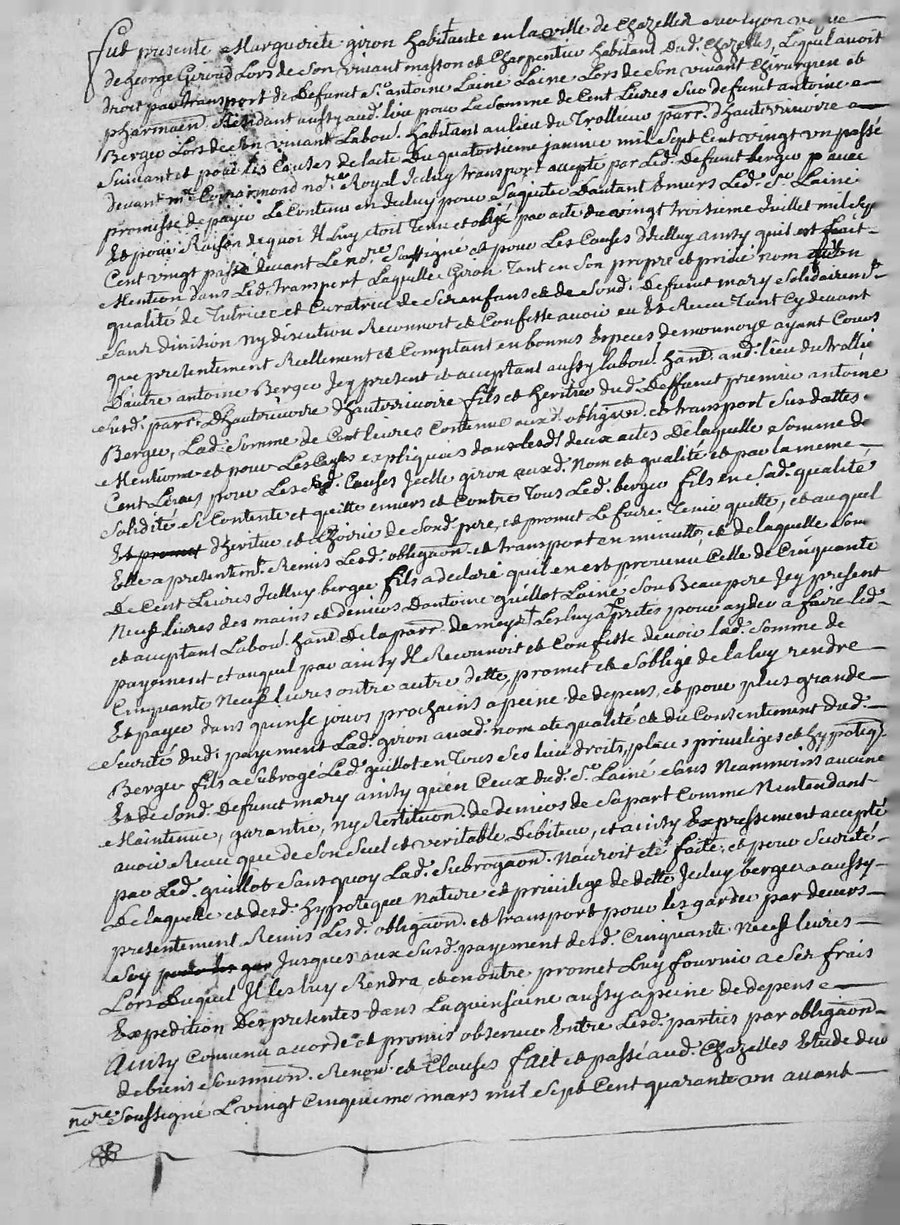 fut presente Marguerite giron habitante en la ville de Chazelles sur lyon veuve
de george Giroud Lors de Son vivant masson et Charpentier habitant aud. Chazelles, Lequel avoit
droit par transport de Deffunt Sr. antoine Lainé Lainé Lors de Son vivant Chirurgien et
pharmaen. Residant aussy aud. lieu pour La Somme de Cent Livres Sur defunt antoine
Berger Lors de Son vivant Labour. habitant au lieu du Trollieu parr. d'hauterivoire
Suivant et pour les Causes de lacte Du quatorsieme janvier mil Sept Cent vingt un passé
devant me. no.re Royal Jceluy transport accepté par Led. defunt berger avec
promesse de payer Le Contenu en Jceluy pour Sa quitte D'autant Envers Led. Sr. Lainé
Et pour Raison de quoi Il Luy etoit Tenu et obligé par acte du vingt troisieme Juillet mil Sept
Cent vingt passé devant Le no.re Soussigné et pour Les Causes d'Jcelluy ainsy quil est fait
Mention dans Led. transport Laquelle Giron Tant en Son propre et privé nom quen
qualité de Tutrice et Curatrice de Ses enfans et de Sond. Defunt mary Solidairemt.
Sans division ny discution Reconnoit et Confesse avoir eu Et Receu Tant Cy devant
que presentement Reellement et Comptant en bonnes Especes de monnoye ayant Cours
D'autre antoine Berger Jcy present et acceptant aussy labour. habt. aud. lieu du trollie
susd. parr. D'hauterivoire d'hauterivoire fils et heritier dud. Deffunt premier antoine
Berger, Lad. Somme de Cent livres Contenue auxd. obligaon. et transport Susdattes
Mentionne et pour Les Causes expliquées dans lesdt. deux actes De laquelle Somme de
Cent Livres pour Les Susd. Causes Jcelle giron auxd. nom et qualité et par la meme
Solidité Se Contente et quitte envers et Contre Tous Led. berger fils en Sad. qualité
Et promet d'heritier et hoirie de Sond. pere, et promet Le faire Tenir quitte, et auquel
Elle a presentemt. Remis Lesd. obligaon. et transport en minutte, et de laquelle Som
De Cent Livres Jcelluy berger fils a declaré quil en est provenu Celle de Cinquante
Neuf livres des mains et deniers Dantoine guillot Lainé Son Beau pere Jcy present
et acceptant Labour. habt. De la parr. de meys Les luy a pretes pour ayder a faire led.
payement et auquel par ainsy Il Reconnoit et Confesse devoir lad. Somme de
Cinquante Neuf livres outre autre dette promet et Soblige de la luy rendre
Et payer dans quinse jours prochains a peine de depens, et pour plus grande
Seurité dud. payement Lad. giron auxd. nom et qualité et du Consentement dud.
Berger fils a Subrogé Led. guillot en Tous Ses lieu droits, places privileges et hypoteq.
Et de Sond. Defunt mary ainsy quen Ceux dud. Sr. Lainé Sans Neanmoins aucune
Maintenue, garantie, ny Restitution. de deniers de Sa part Comme Nentendant
avoir Receu que de Son Seul et veritable Debiteur, et ainsy Expressement accepté
par Led. guillot Sans quoy Lad. Subrogaon. Nauroit eté faite et pour Seureté
De laquelle et desd. hypoteque Nature et privilege de dette Jceluy berger aussy
presentement Remis Lesd. obligaon. et transport pour les garder par devers
Soy pour les gar Jusques aux Susd. payement desd. Cinquante Neuf livres
Lors Duquel Il les luy Rendra et en outre promet Luy fournir a Ses frais
Expedition Des presentes dans La quinsaine aussy a peine de depens
Ainsy Convenu accordé et promis observer Entre Lesd. parties par obligaon.
de biens Soumion. Renon. et Clauses fait et passé aud. Chazelles Etude du
no.re Soussigné Le vingt Cinquieme mars mil Sept Cent quarante un avant